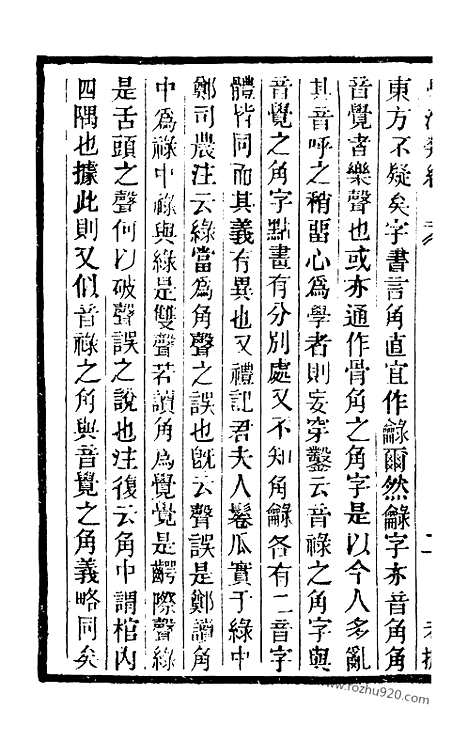 東方不疑矣字書言角直宜作龣爾然龣字亦音角角
音覺者樂聲也或亦通作骨角之角字是以今人多亂
其音呼之稍留心為學者則妄穿鑿云音祿之角字與
音覺之角字點畫有分別處又不知角龣各有二音字
體皆同而其義有異也又禮記君夫人鬈瓜實于綠中
鄭司農注云綠當為角聲之誤也旣云聲誤是鄭讀角
中為祿中祿與綠是雙聲若讀角為覺覺是齶際聲綠
是舌頭之聲何以破聲誤之說也注復云角中謂棺內
四隅也據此則又似音祿之角與音覺之角義略同矣
www.fozhu920.com